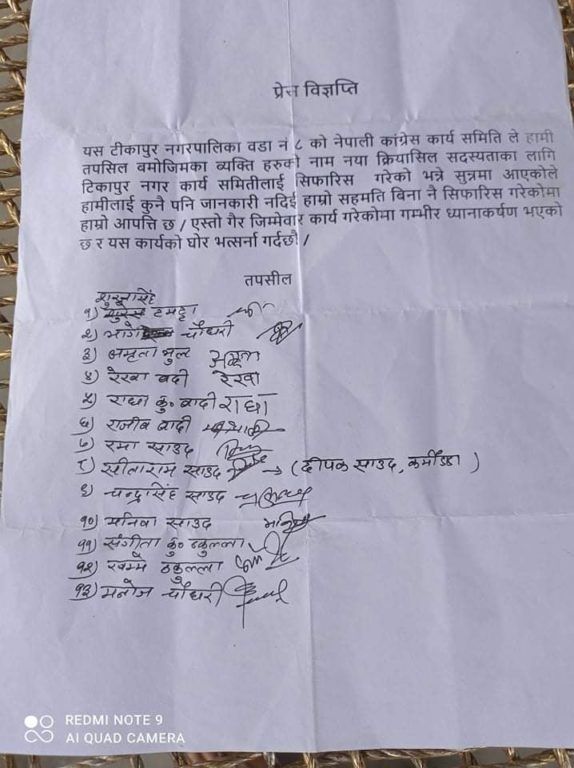 प्रेस विज्ञप्ति
यस टीकापुर नगरपालिका वडा नं ८ को नेपाली कांग्रेस कार्य समिति ले हामी
तपसिल बमोजिमका व्यक्ति हरुको नाम नया क्रियासिल सदस्यताका लागि
टिकापुर नगर कार्य समितीलाई सिफारिस गरेको भन्ने सुन्नमा आएकोले
हामीलाई कुनै पनि जानकारी नदिई हाम्रो सहमति बिना नै सिफारिस गरेकोमा
हाम्रो आपत्ति छ / एस्तो गैर जिम्मेवार कार्य गरेकोमा गम्भीर ध्यानाकर्षण भएको
छ र यस कार्यको घोर भत्सर्ना गर्दछौं /
तपसील
१)
२) चौधरी
३) अमृता भुल अमृता
४) रेखा वादी रेखा
५) राधा कु॰ वादी राधा
६) राजीव वादी
७) रमा साउद
८) सीताराम साउद → (दीपक साउद, )
९) चन्द्रसिंह साउद
१०) साउद
११) संगीता कु॰ ठकुल्ला
१२) ठकुल्ला
१३) मनोज चौधरी
REDMI NOTE 9
AI QUAD CAMERA